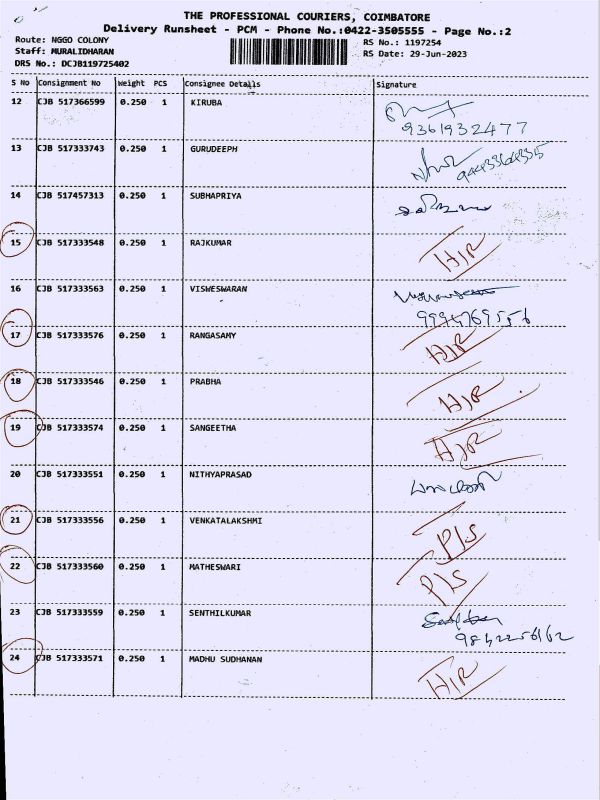 THE PROFESSIONAL COURIERS, COIMBATORE
Delivery Runsheet - PCM - Phone No.:0422-3505555 - Page No.:2
Route: NGGO COLONY
RS No.: 1197254
Staff: MURALIDHARAN
RS Date: 29-Jun-2023
DRS No.: DCJB119725402
S No Consignment No Weight PCS Consignee Details Signature
12 CJB 517366599 0.250 1 KIRUBA
9361932477
13 CJB 517333743 0.250 1 GURUDEEPH
14 CJB 517457313 0.250 1 SUBHAPRIYA
15 CJB 517333548 0.250 1 RAJKUMAR H/R
16 CJB 517333563 0.250 1 VISWESWARAN
9994769556
17 CJB 517333576 0.250 1 RANGASAMY H/R
18 CJB 517333546 0.250 1 PRABHA H/R
19 CJB 517333574 0.250 1 SANGEETHA H/R
20 CJB 517333551 0.250 1 NITHYAPRASAD
21 CJB 517333556 0.250 1 VENKATALAKSHMI P/S
22 CJB 517333560 0.250 1 MATHESWARI P/S
23 CJB 517333559 0.250 1 SENTHILKUMAR
24 CJB 517333571 0.250 1 MADHU SUDHANAN H/R